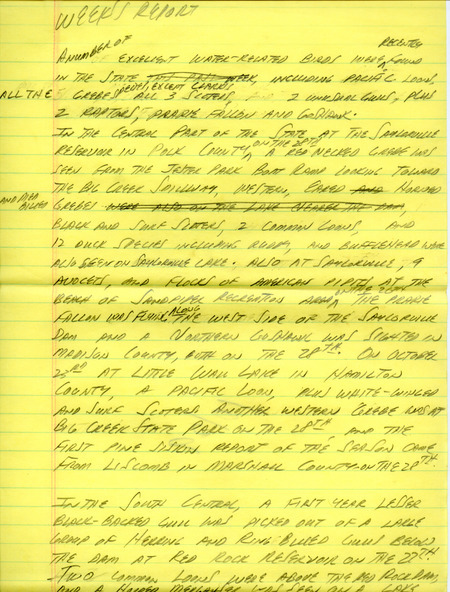 WEEK'S REPORT
A NUMBER OF EXCELLENT WATER-RELATED BIRDS WERE RECENTLY FOUND
IN THE STATE THIS PAST WEEK, INCLUDING PACIFIC LOON,
ALL THE GREBES EXCEPT CLARK'S ALL 3 SCOTERS, 2 UNUSUAL GULLS, PLUS
2 RAPTORS, PRAIRIE FALCON AND GOSHAWK.
IN THE CENTRAL PART OF THE STATE AT THE SAYLORVILLE
RESERVOIR IN POLK COUNTY, ON THE 28TH A RED NECKED GREBE WAS
SEEN FROM THE JESTER PARK BOAT RAMP LOOKING TOWARD
THE BIG CREEK SPILLWAY, WESTERN, EARED AND HORNED
AND PIED BILLED GREBES WERE ALSO ON THE LAKE NEARER THE DAM,
BLACK AND SURF SCOTERS, 2 COMMON LOONS, AND
12 DUCK SPECIES INCLUDING RUDDY, AND BUFFLEHEAD WERE
ALSO SEEN ON SAYLORVILLE LAKE. ALSO AT SAYLORVILLE, 9
AVOCETS, AND FLOCKS OF AMERICAN PIPITS AT THE
BEACH OF SANDPIPER RECREATION AREA, THE PRAIRIE
FALCON WAS FLYING ALONG THE WEST SIDE OF THE SAYLORVILLE
DAM AND A NORTHERN GOSHAWK WAS SIGHTED IN
MADISON COUNTY, BOTH ON THE 28TH. ON OCTOBER
23RD AT LITTLE WALL LAKE IN HAMILTON
COUNTY, A PACIFIC LOON, PLUS WHITE-WINGED
AND SURF SCOTERS ANOTHER WESTERN GREBE WAS AT
BIG CREEK STATE PARK ON THE 28TH, AND THE
FIRST PINE SISKIN REPORT OF THE SEASON CAME
FROM LISCOMB IN MARSHALL COUNTY ON THE 28TH.
IN THE SOUTH CENTRAL, A FIRST YEAR LESSER
BLACK-BACKED GULL WAS PICKED OUT OF A LARGE
GROUP OF HERRING AND RING-BILLED GULLS BELOW
THE DAM AT RED ROCK RESERVOIR ON THE 27TH.
TWO COMMON LOONS WERE ABOVE THE RED ROCK DAM,
AND A HOODED MERGANSER WAS SEEN ON A LAKE